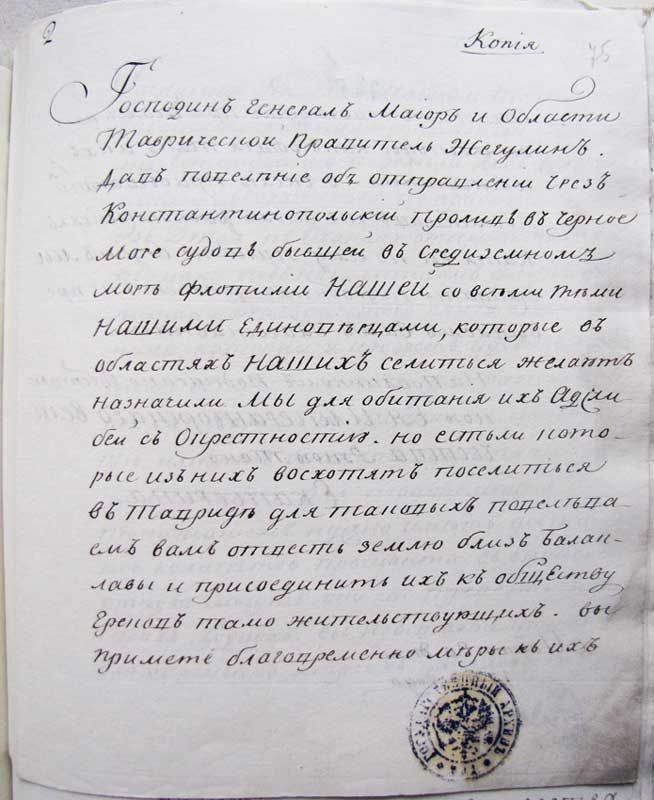 2
Копія
75
Господинъ Генералъ Маіоръ и Области
Таврической Правитель Жегулинъ.
Давъ повелѣніе объ отправленіи чрезъ
Константинопольскій проливъ въ Черное
море судовъ бывшей въ средиземномъ
морѣ флотиліи НАШЕЙ со всѣми тѣми
НАШИМИ единовѣрцами, которые въ
областяхъ НАШИХЪ селиться желаютъ
назначили МЫ для обитанія ихъ Аджи
беи съ Окрестностьми. но естьли кото-
рые изъ нихъ восхотятъ поселиться
въ Тавридѣ для таковыхъ повелѣва-
емъ вамъ отвесть землю близъ Балак-
лавы и присоединить ихъ къ обществу
Грековъ тамо жительствующихъ. вы
примете благовременно мѣры къ ихъ
ГОСУДАРСТВЕННЫЙ АРХИВЪ